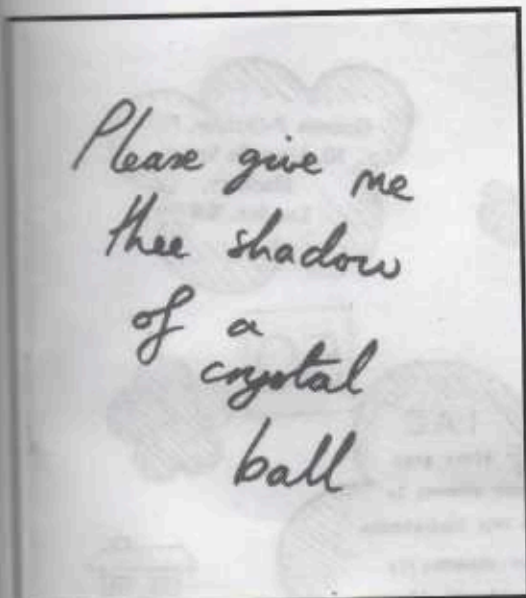 Please give me
thee shadow
of a
crystal
ball